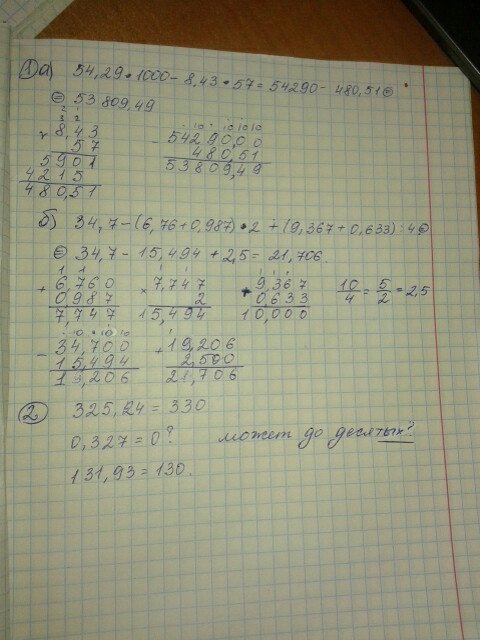 ① а) 54,29 • 1000 - 8,43 • 57 = 54290 - 480,51 ⊜
⊜ 53809,49
2 1
3 2
× 8,43
57
5901
4215
480,51
10 10 10 10
- 54290,00
480,51
53809,49
б) 34,7 - (6,76 + 0,987) • 2 + (9,367 + 0,633) : 4 ⊜
⊜ 34,7 - 15,494 + 2,5 = 21,706.
1 1
+ 6,760
0,987
7,747
1 1
× 7,747
2
15,494
1 1 1
+ 9,367
0,633
10,000
10/4 = 5/2 = 2,5
10 10 10
- 34,700
15,494
19,206
1
+ 19,206
2,500
21,706
② 325,24 = 330
0,327 = 0? может до десятых?
131,93 = 130.